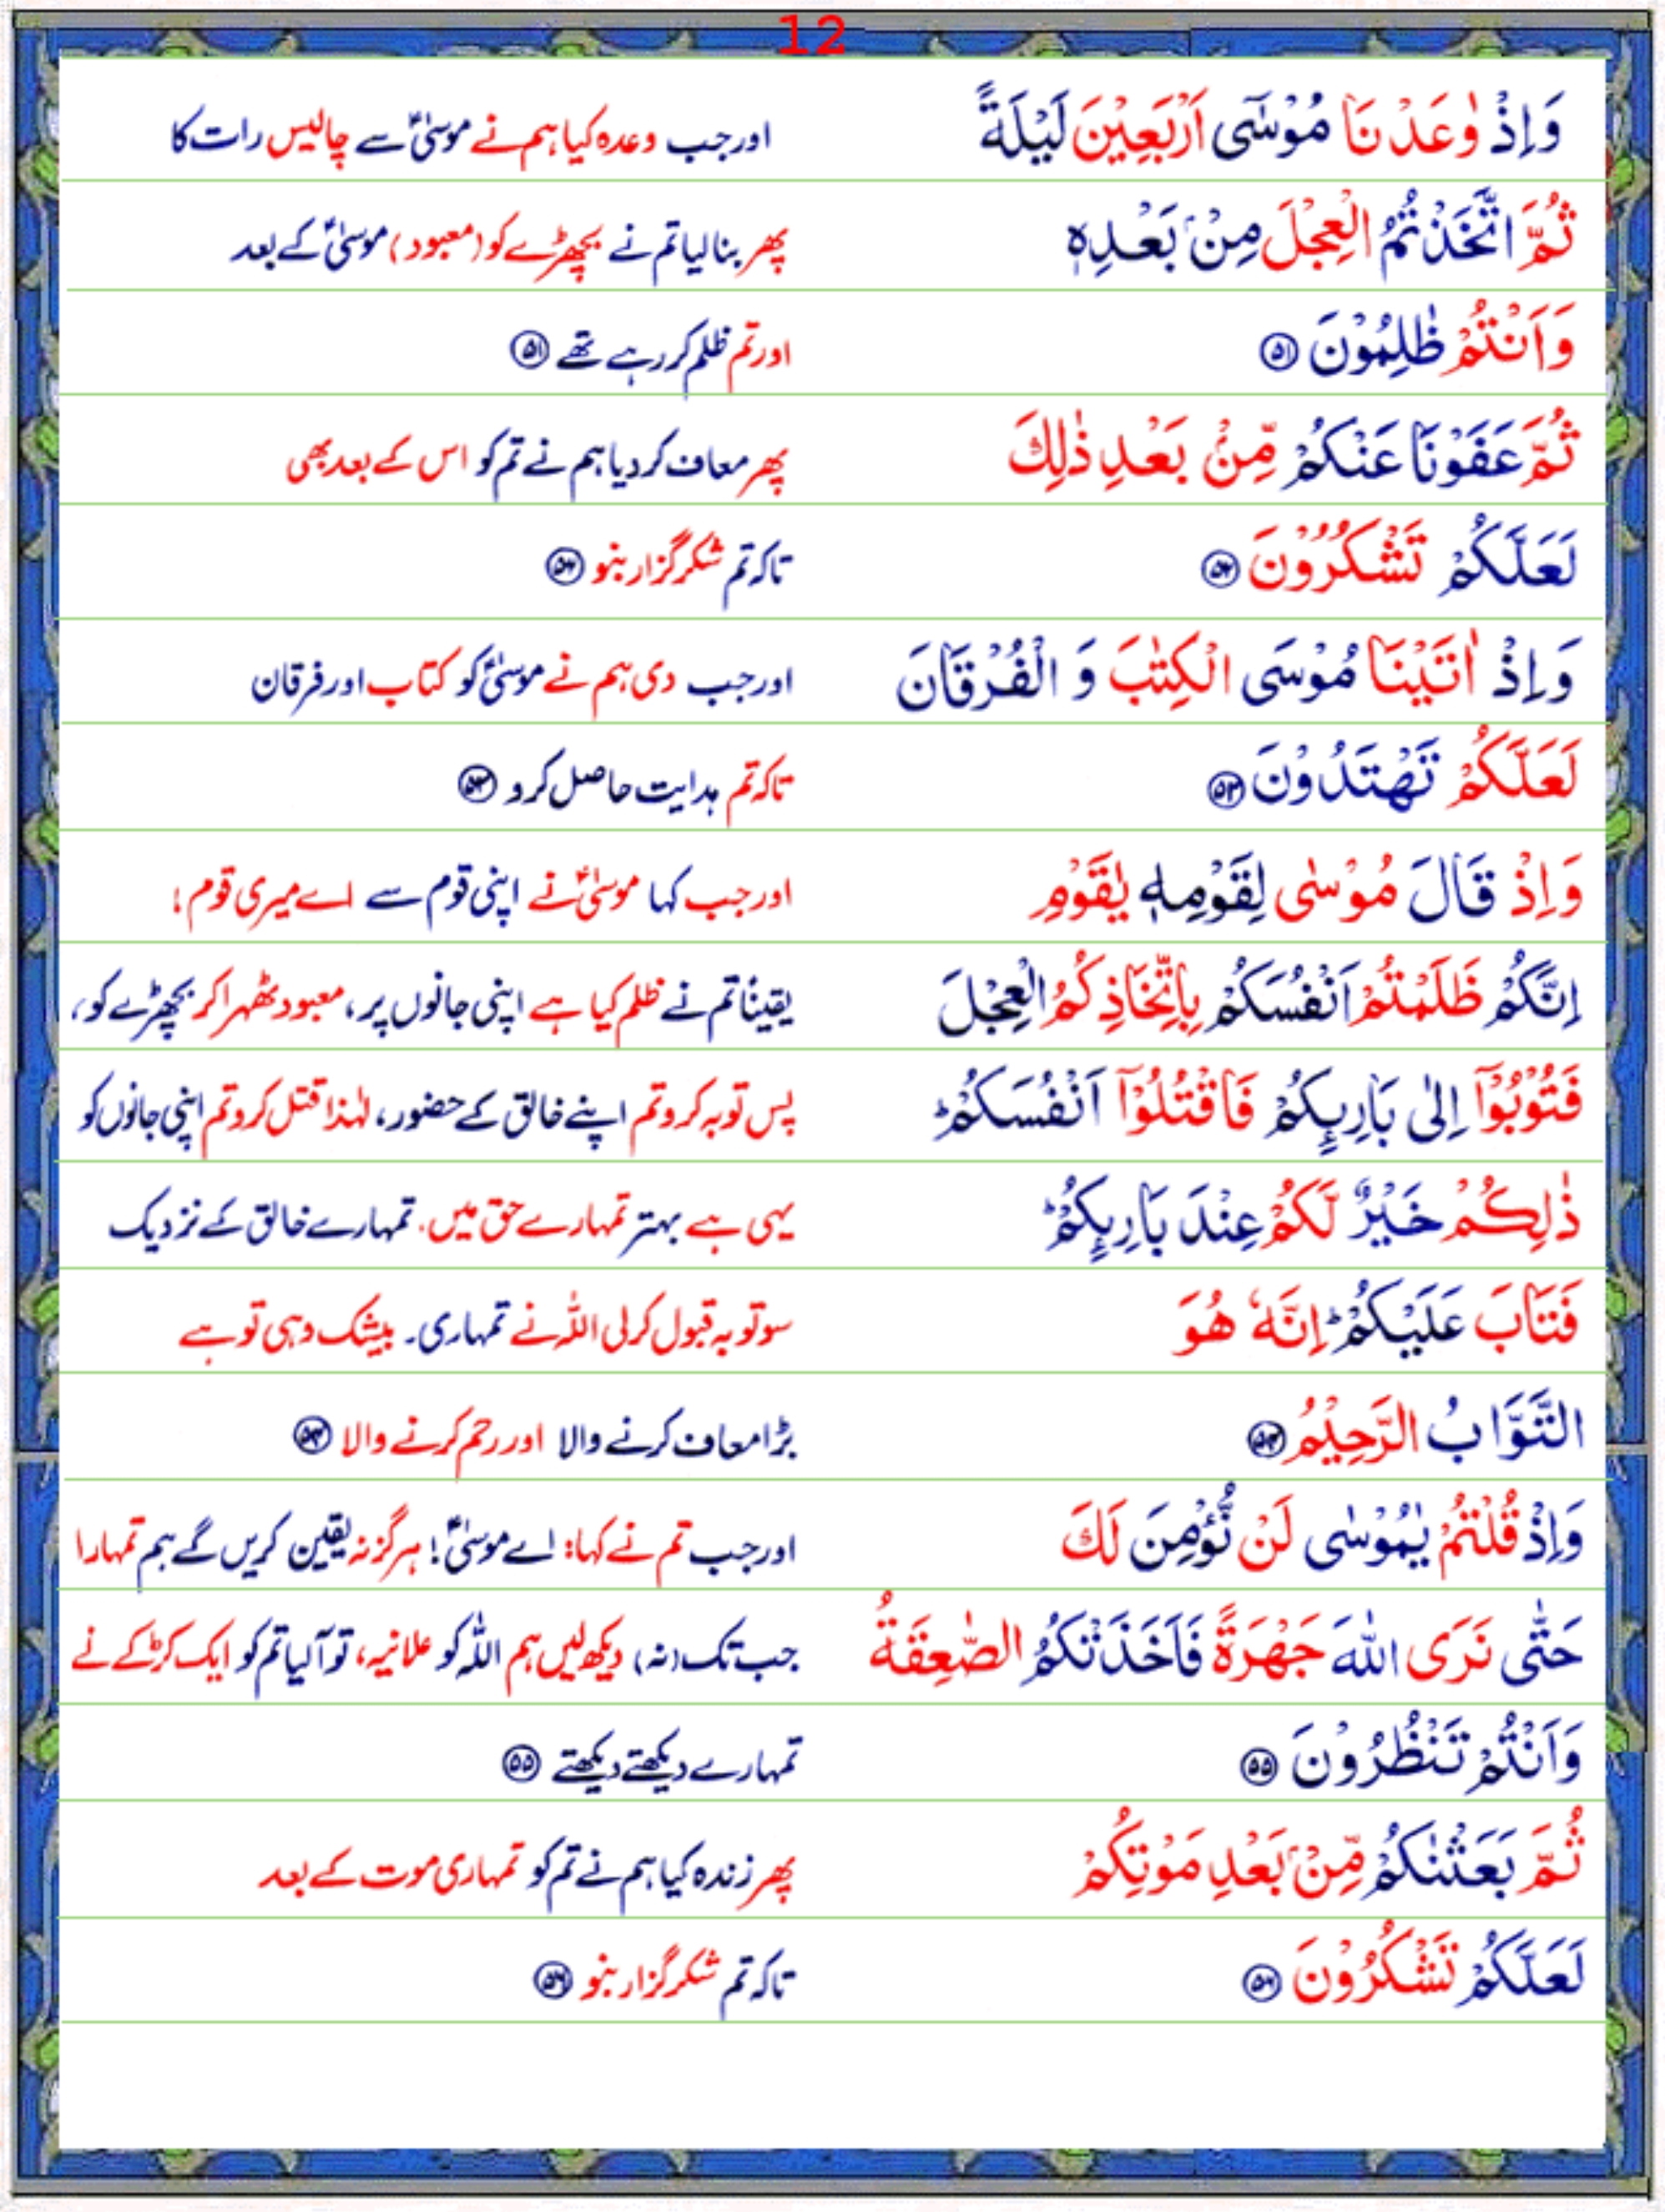 12
وَاِذْ وٰعَدْنَا مُوْسٰٓى اَرْبَعِيْنَ لَيْلَةً اور جب وعدہ کیا ہم نے موسٰیؑ سے چالیس رات کا
ثُمَّ اتَّخَذْتُمُ الْعِجْلَ مِنْۢ بَعْدِهٖ پھر بنالیا تم نے بچھڑے کو (معبود) موسٰیؑ کے بعد
وَاَنْتُمْ ظٰلِمُوْنَ ۵۱ اور تم ظلم کر رہے تھے ۵۱
ثُمَّ عَفَوْنَا عَنْكُمْ مِّنْۢ بَعْدِ ذٰلِكَ پھر معاف کر دیا ہم نے تم کو اس کے بعد بھی
لَعَلَّكُمْ تَشْكُرُوْنَ ۵۲ تاکہ تم شکر گزار بنو ۵۲
وَاِذْ اٰتَيْنَا مُوْسَى الْكِتٰبَ وَ الْفُرْقَانَ اور جب دی ہم نے موسٰیؑ کو کتاب اور فرقان
لَعَلَّكُمْ تَهْتَدُوْنَ ۵۳ تاکہ تم ہدایت حاصل کرو ۵۳
وَاِذْ قَالَ مُوْسٰى لِقَوْمِهٖ يٰقَوْمِ اور جب کہا موسٰیؑ نے اپنی قوم سے اے میری قوم!
اِنَّكُمْ ظَلَمْتُمْ اَنْفُسَكُمْ بِاتِّخَاذِكُمُ الْعِجْلَ یقیناً تم نے ظلم کیا ہے اپنی جانوں پر، معبود ٹھہرا کر بچھڑے کو،
فَتُوْبُوْٓا اِلٰى بَارِئِكُمْ فَاقْتُلُوْٓا اَنْفُسَكُمْ ؕ پس توبہ کرو تم اپنے خالق کے حضور، لہٰذا قتل کرو تم اپنی جانوں کو
ذٰلِكُمْ خَيْرٌ لَّكُمْ عِنْدَ بَارِئِكُمْ ؕ یہی ہے بہتر تمہارے حق میں. تمہارے خالق کے نزدیک
فَتَابَ عَلَيْكُمْ ؕ اِنَّهٗ هُوَ سو توبہ قبول کر لی اللہ نے تمہاری۔ بیشک وہی تو ہے
التَّوَّابُ الرَّحِيْمُ ۵۴ بڑا معاف کرنے والا اور رحم کرنے والا ۵۴
وَاِذْ قُلْتُمْ يٰمُوْسٰى لَنْ نُّؤْمِنَ لَكَ اور جب تم نے کہا: اے موسٰیؑ! ہرگز نہ یقین کریں گے ہم تمہارا
حَتّٰى نَرَى اللّٰهَ جَهْرَةً فَاَخَذَتْكُمُ الصّٰعِقَةُ جب تک (نہ) دیکھ لیں ہم اللہ کو علانیہ، تو آلیا تم کو ایک کڑکے نے
وَاَنْتُمْ تَنْظُرُوْنَ ۵۵ تمہارے دیکھتے دیکھتے ۵۵
ثُمَّ بَعَثْنٰكُمْ مِّنْۢ بَعْدِ مَوْتِكُمْ پھر زندہ کیا ہم نے تم کو تمہاری موت کے بعد
لَعَلَّكُمْ تَشْكُرُوْنَ ۵۶ تاکہ تم شکر گزار بنو ۵۶